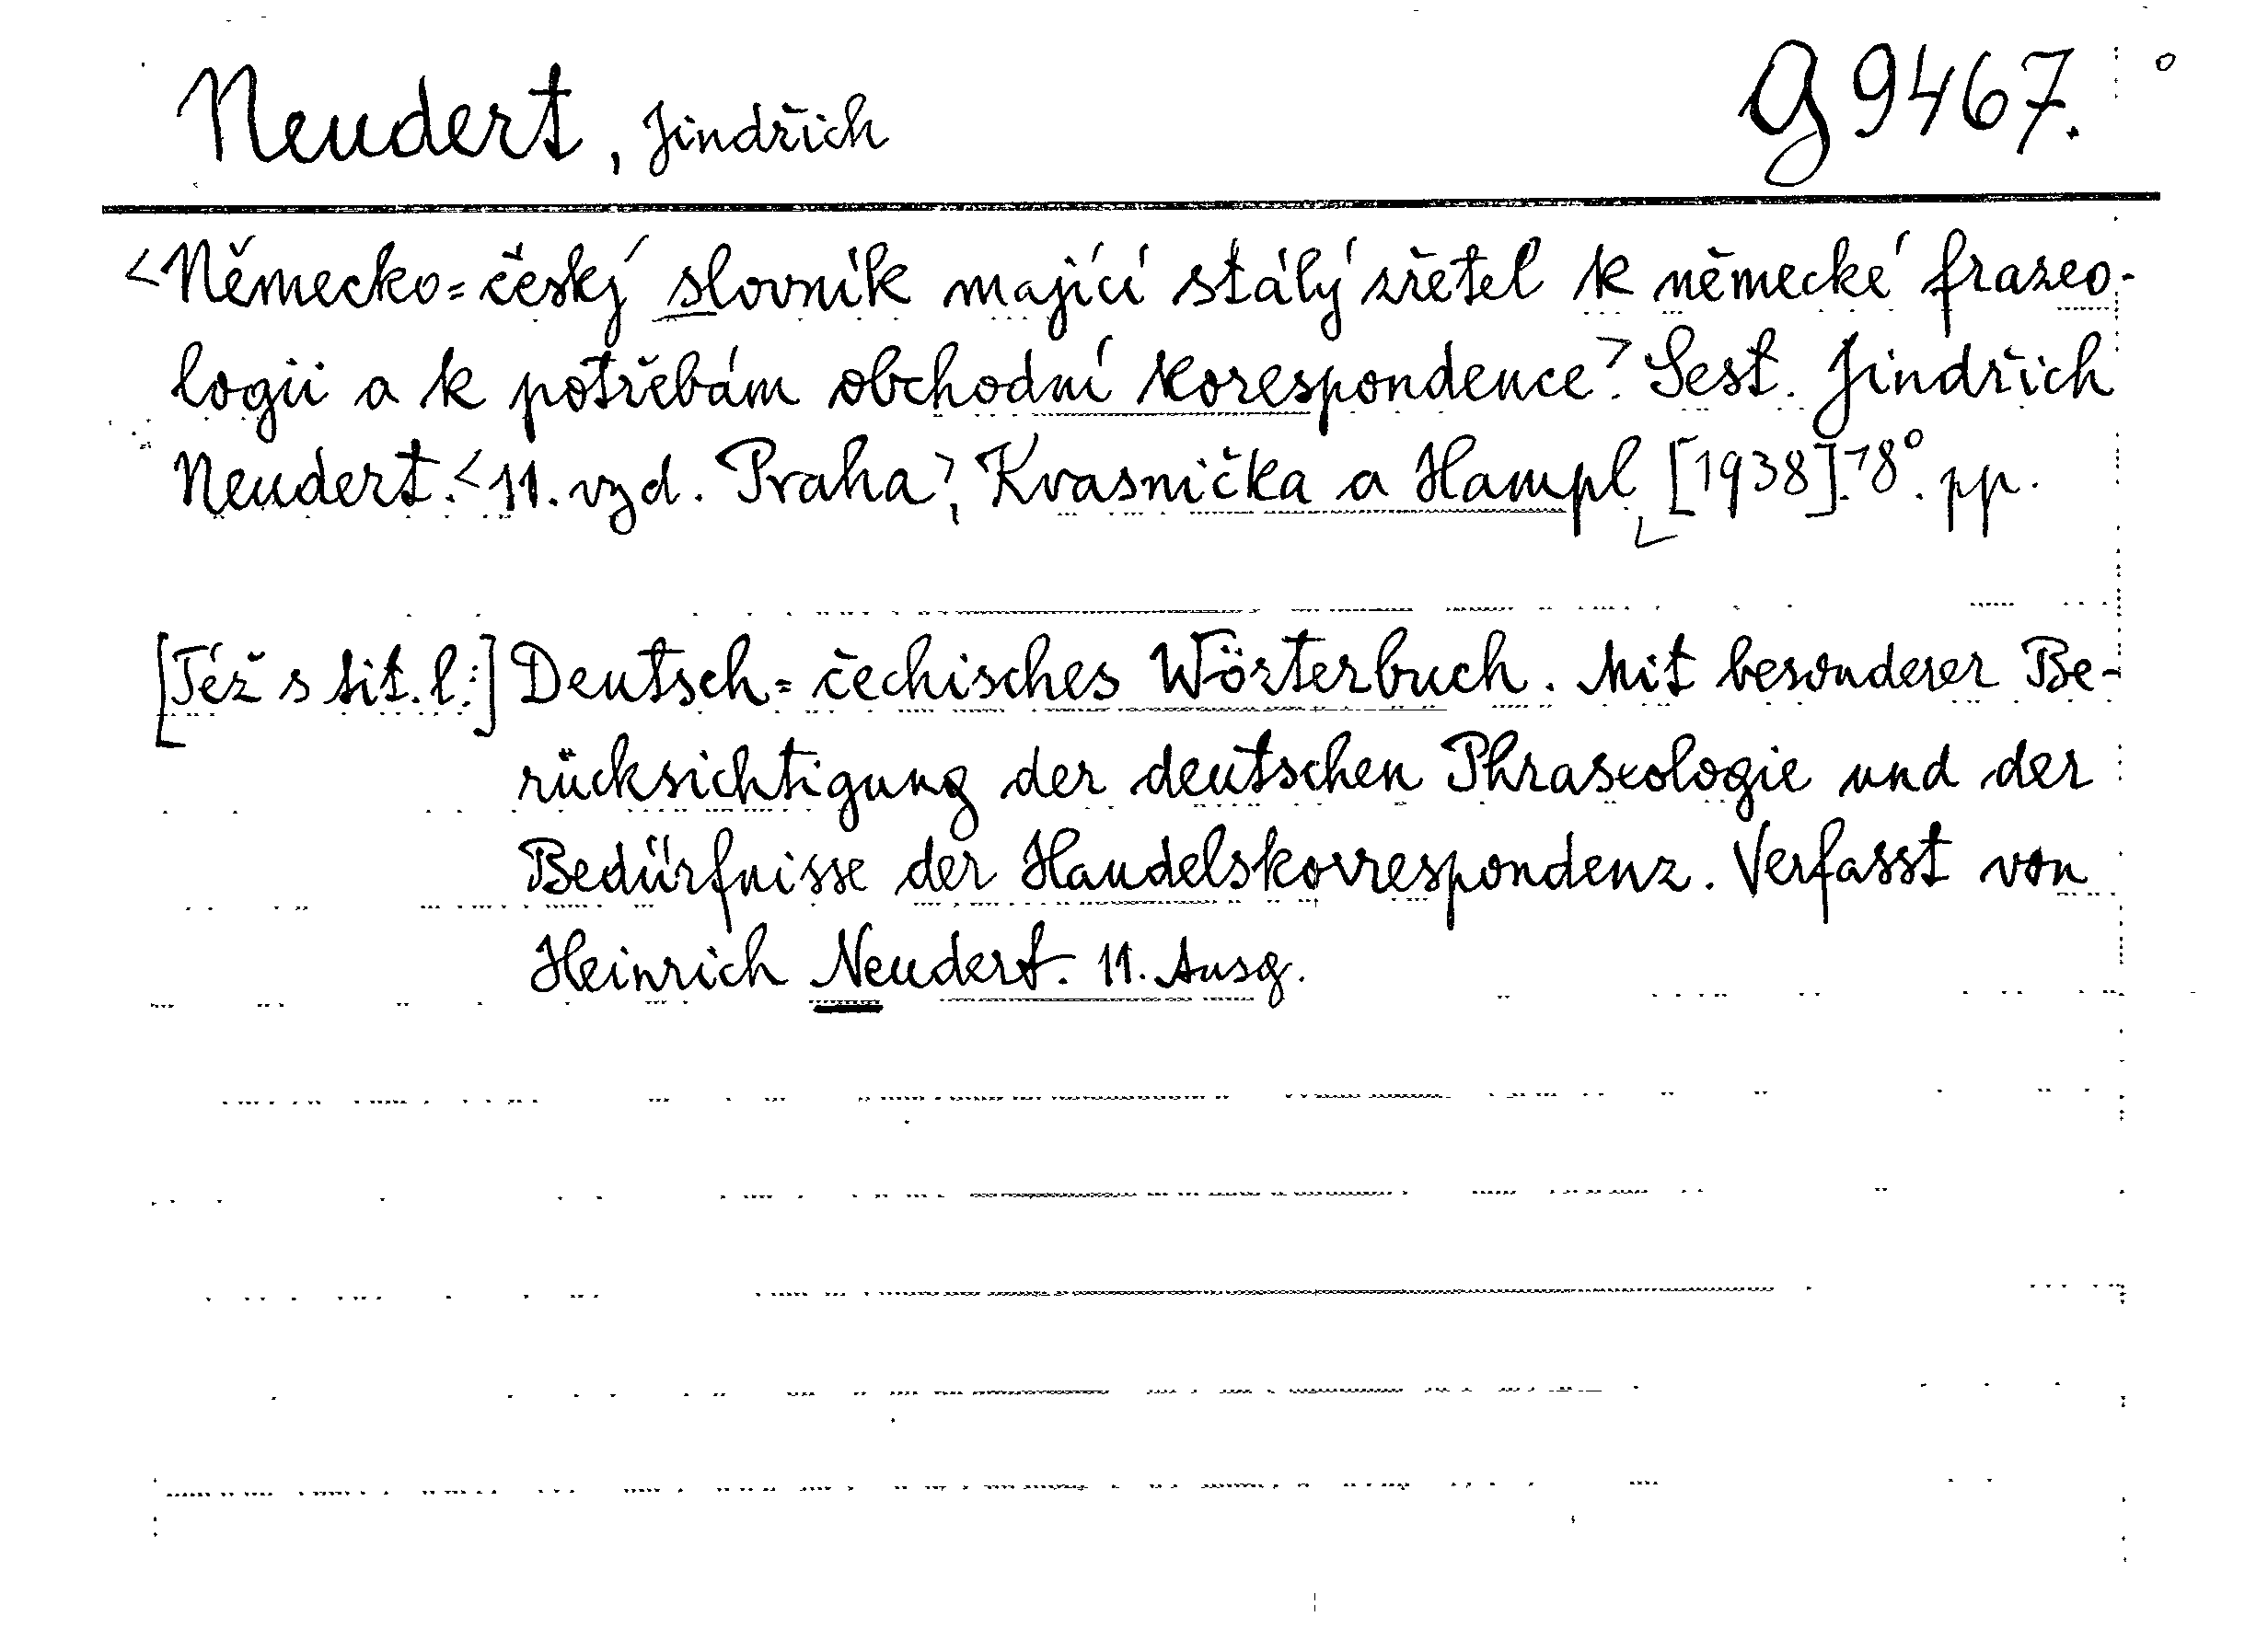 Neudert, Jindřich G 9467.
<Německo=český slovník mající stálý zřetel k německé frazeo-
logii a k potřebám obchodní korespondence>. Sest. Jindřich
Neudert. <11. vyd. Praha>, Kvasnička a Hampl, [1938]. 8°. pp.
[Též s tit. l.:] Deutsch=čechisches Wörterbuch. Mit besonderer Be-
rücksichtigung der deutschen Phraseologie und der
Bedürfnisse der Handelskorrespondenz. Verfasst von
Heinrich Neudert. 11. Ausg.